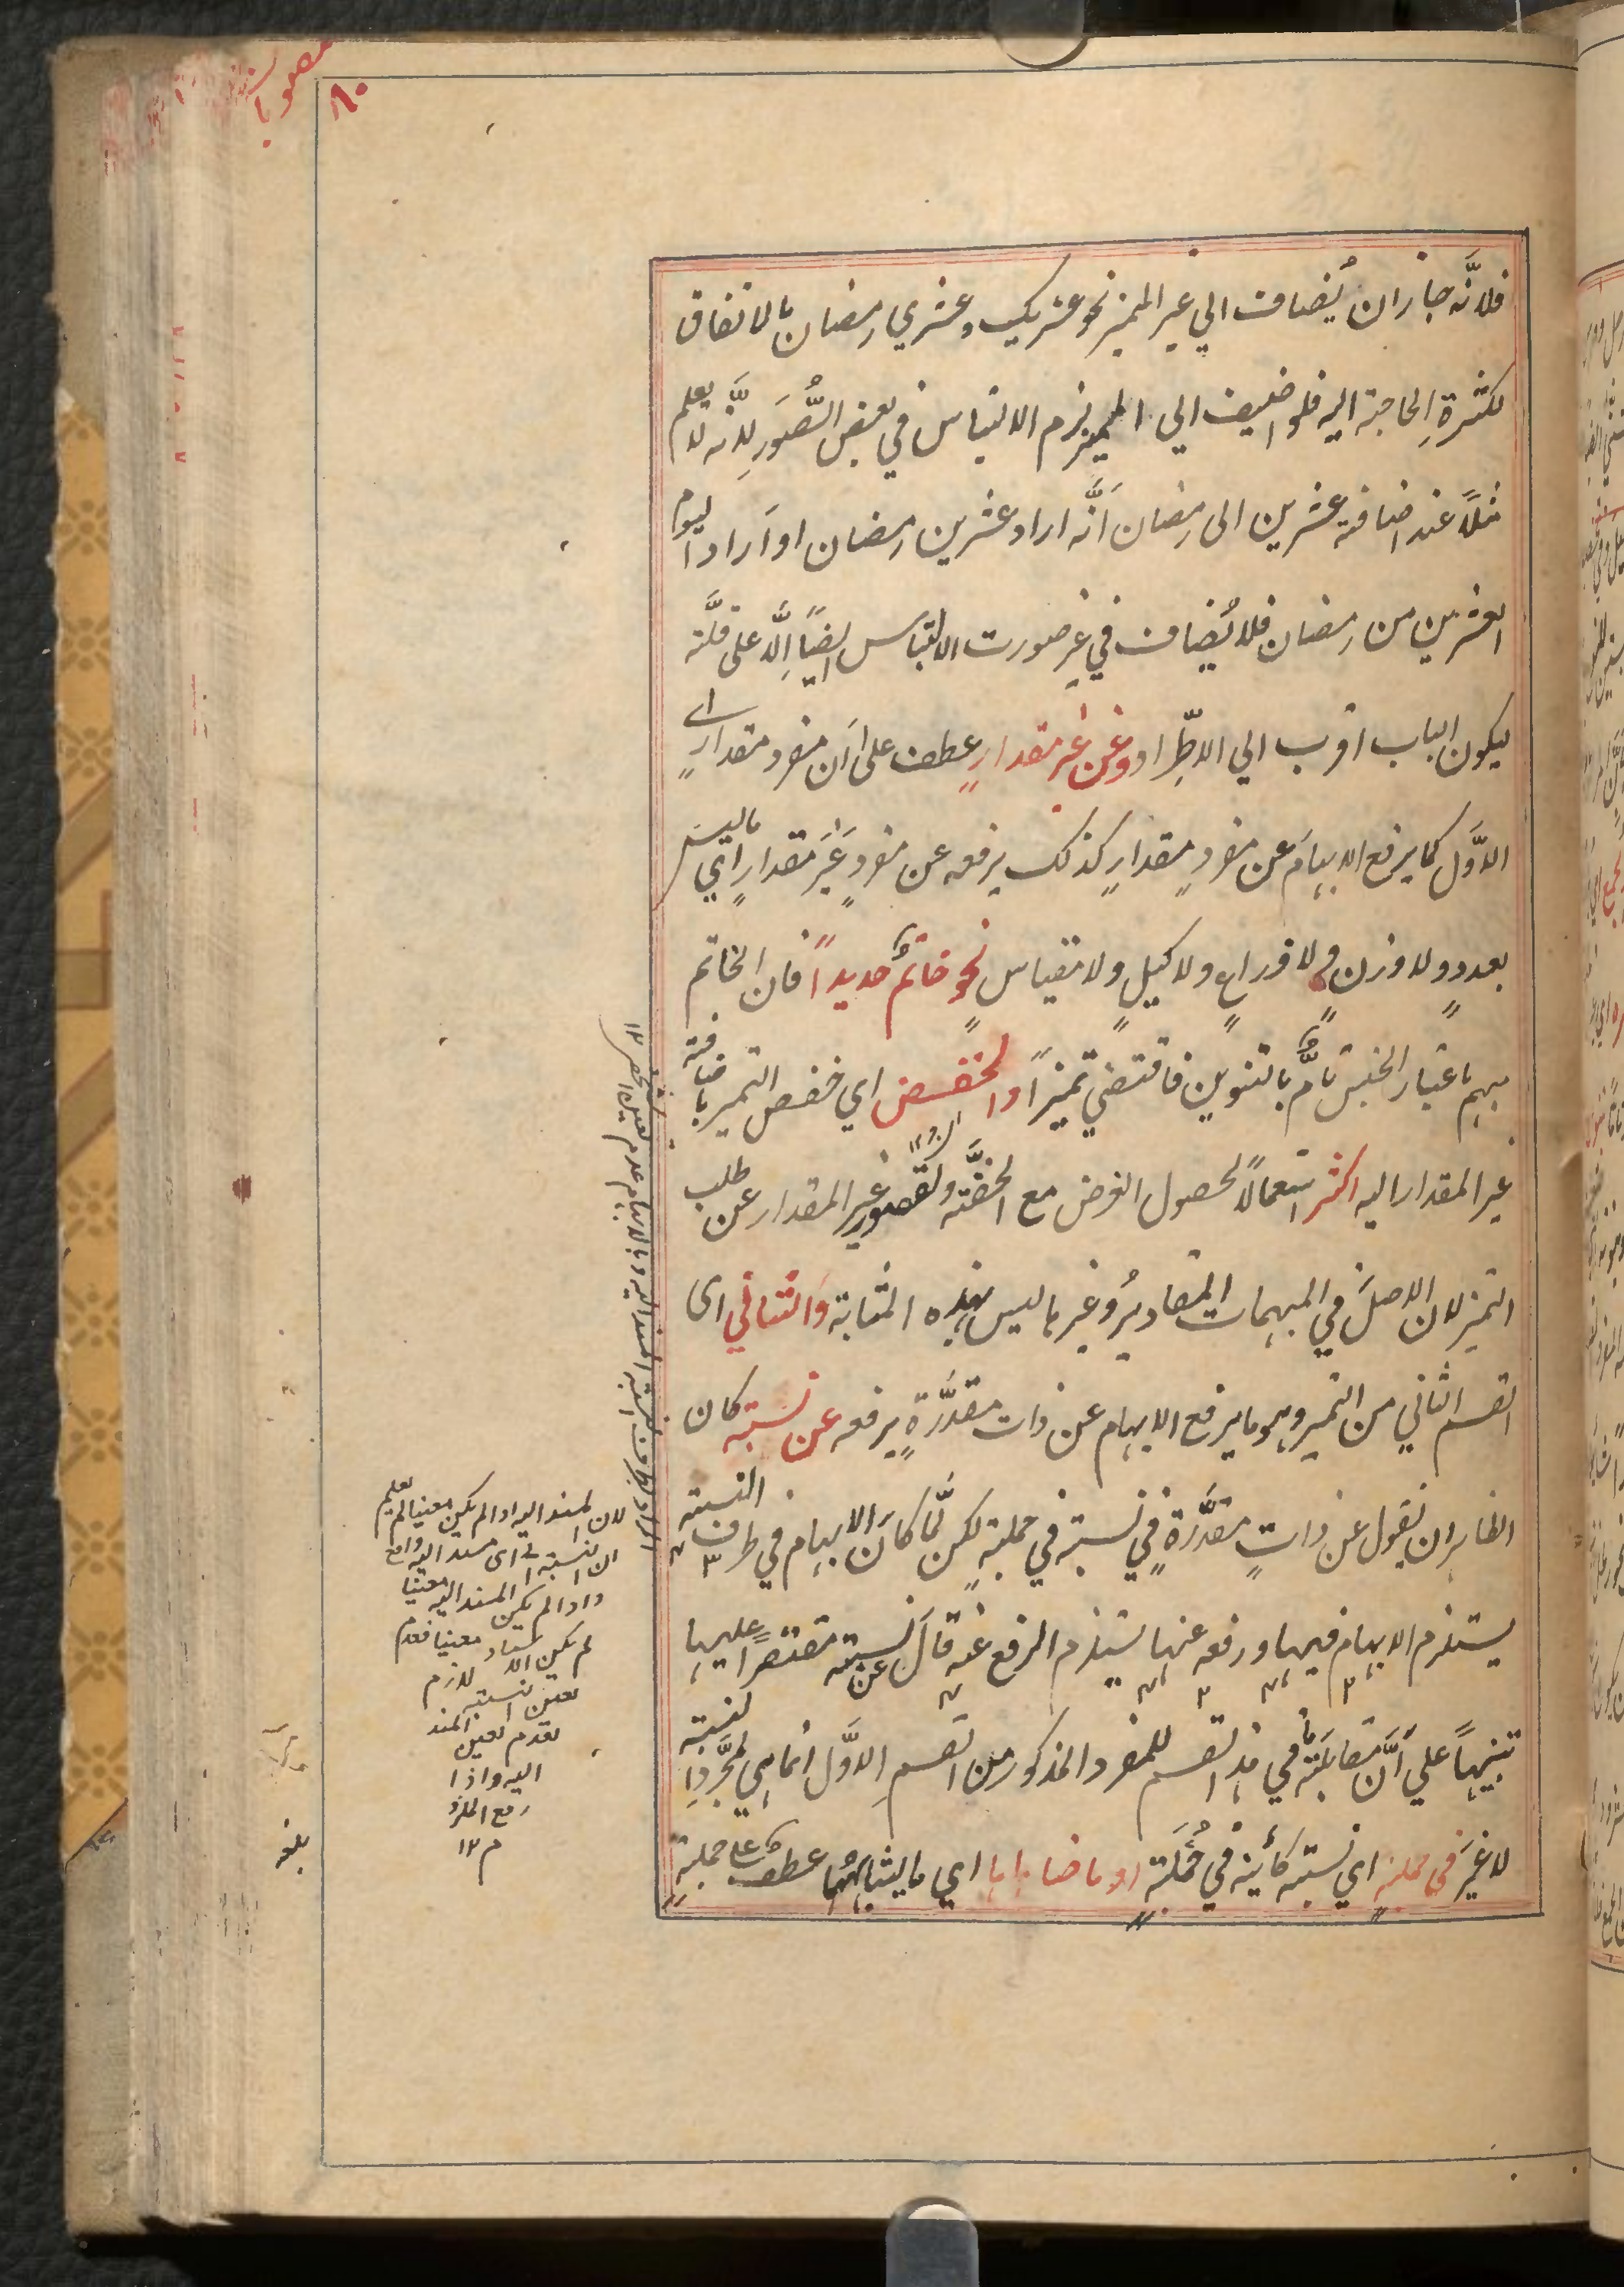 ٨٠
فلانَّه جاز ان يُضاف الي غير المميز نحو عشريك وعشري رمضان بالاتفاق
لكثرةِ الحاجة اليه فلو اضيف الي المميز لزم الالتباس في بعض الصُّوَر لِانَّه لا يعلم
مثلاً عند اضافة عشرين الى رمضان اَنَّه اراد عشرين رمضان او اَراد اليوم
العشرين من رمضان فلا يُضاف في غير صورت الالتباس ايضاً اِلَّا على قلَّة
ليكون الباب اقرب الي الاطِّراد وعن غير مقدارٍ عطف على اَن مفرد مقدارٍ اے
الاوَّل كما يرفع الابهامَ عن مفردٍ مقدارٍ كذلك يرفعه عن مفردٍ غَيرِ مقدارٍ اي ما ليس
بعددٍ ولا وزن ولا ذراعٍ ولا كيلٍ ولا مقياس نحو خاتمٌ حديداً فان الخاتم
مبهم باعتبار الجنس تامٌّ بالتنوين فاقتضي تميزاً والخفض اي خفض التميز باضافة
غير المقدار اليه اكثر استعمالاً لحصول الغرض مع الخفَّة ولقصور غير المقدار عن طلب
التميز لان الاصلَ في المبهمات المقاديرُ وغيرها ليس بهذه المثابة وَالثاني اى
القسم الثاني من التميز وهو ما يرفع الابهام عن ذات مقدَّرةٍ يرفعه عن نسبة كان
الظاهر ان يقول عن ذاتٍ مقدَّرةٍ في نسبة في جملةٍ لكن لَّما كانَ الابهام في طرف النسبة
يستلزم الابهام فيها ورفعه عنها يستلزم الرفع عنه قال عن نسبة مقتصراً عليها
تنبيهاً علي اَنَّ مقابلَتَها في هذا القسم للمفرد المذكور من القسم الاوَّل انما هي لمجَّردِ النسبة
لا غيرَ في جملةٍ اي نسبة كائنة في جُملَةٍ او ما ضاهاها اي ما يشابهها عطف على جملةٍ
لان المسند اليه اذا لم يكن معينا لم يعلم
ان النسبة الى اى مسند اليه واقع
واذا لم يكن المسند اليه معينا
لم يكن الاسناد معينا فعدم
تعين النسبة لازم
لعدم تعين المسند
اليه واذا
رفع الملزو
م ١٢
بلغه